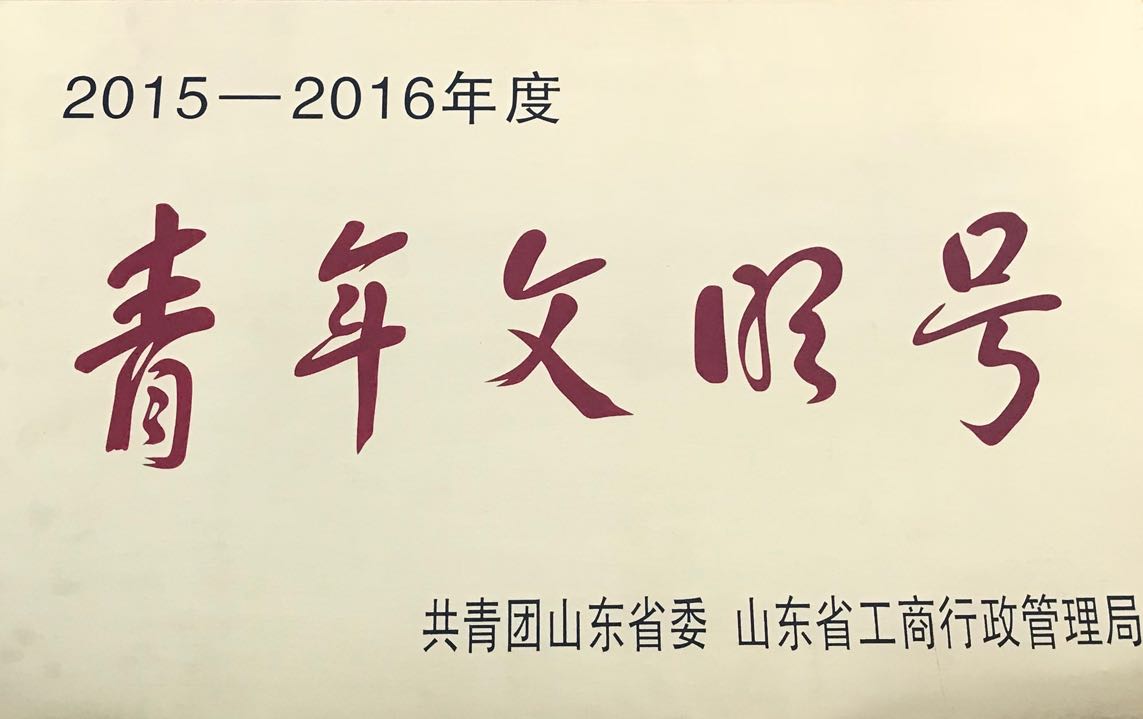 2015—2016年度
青年文明号
共青团山东省委 山东省工商行政管理局